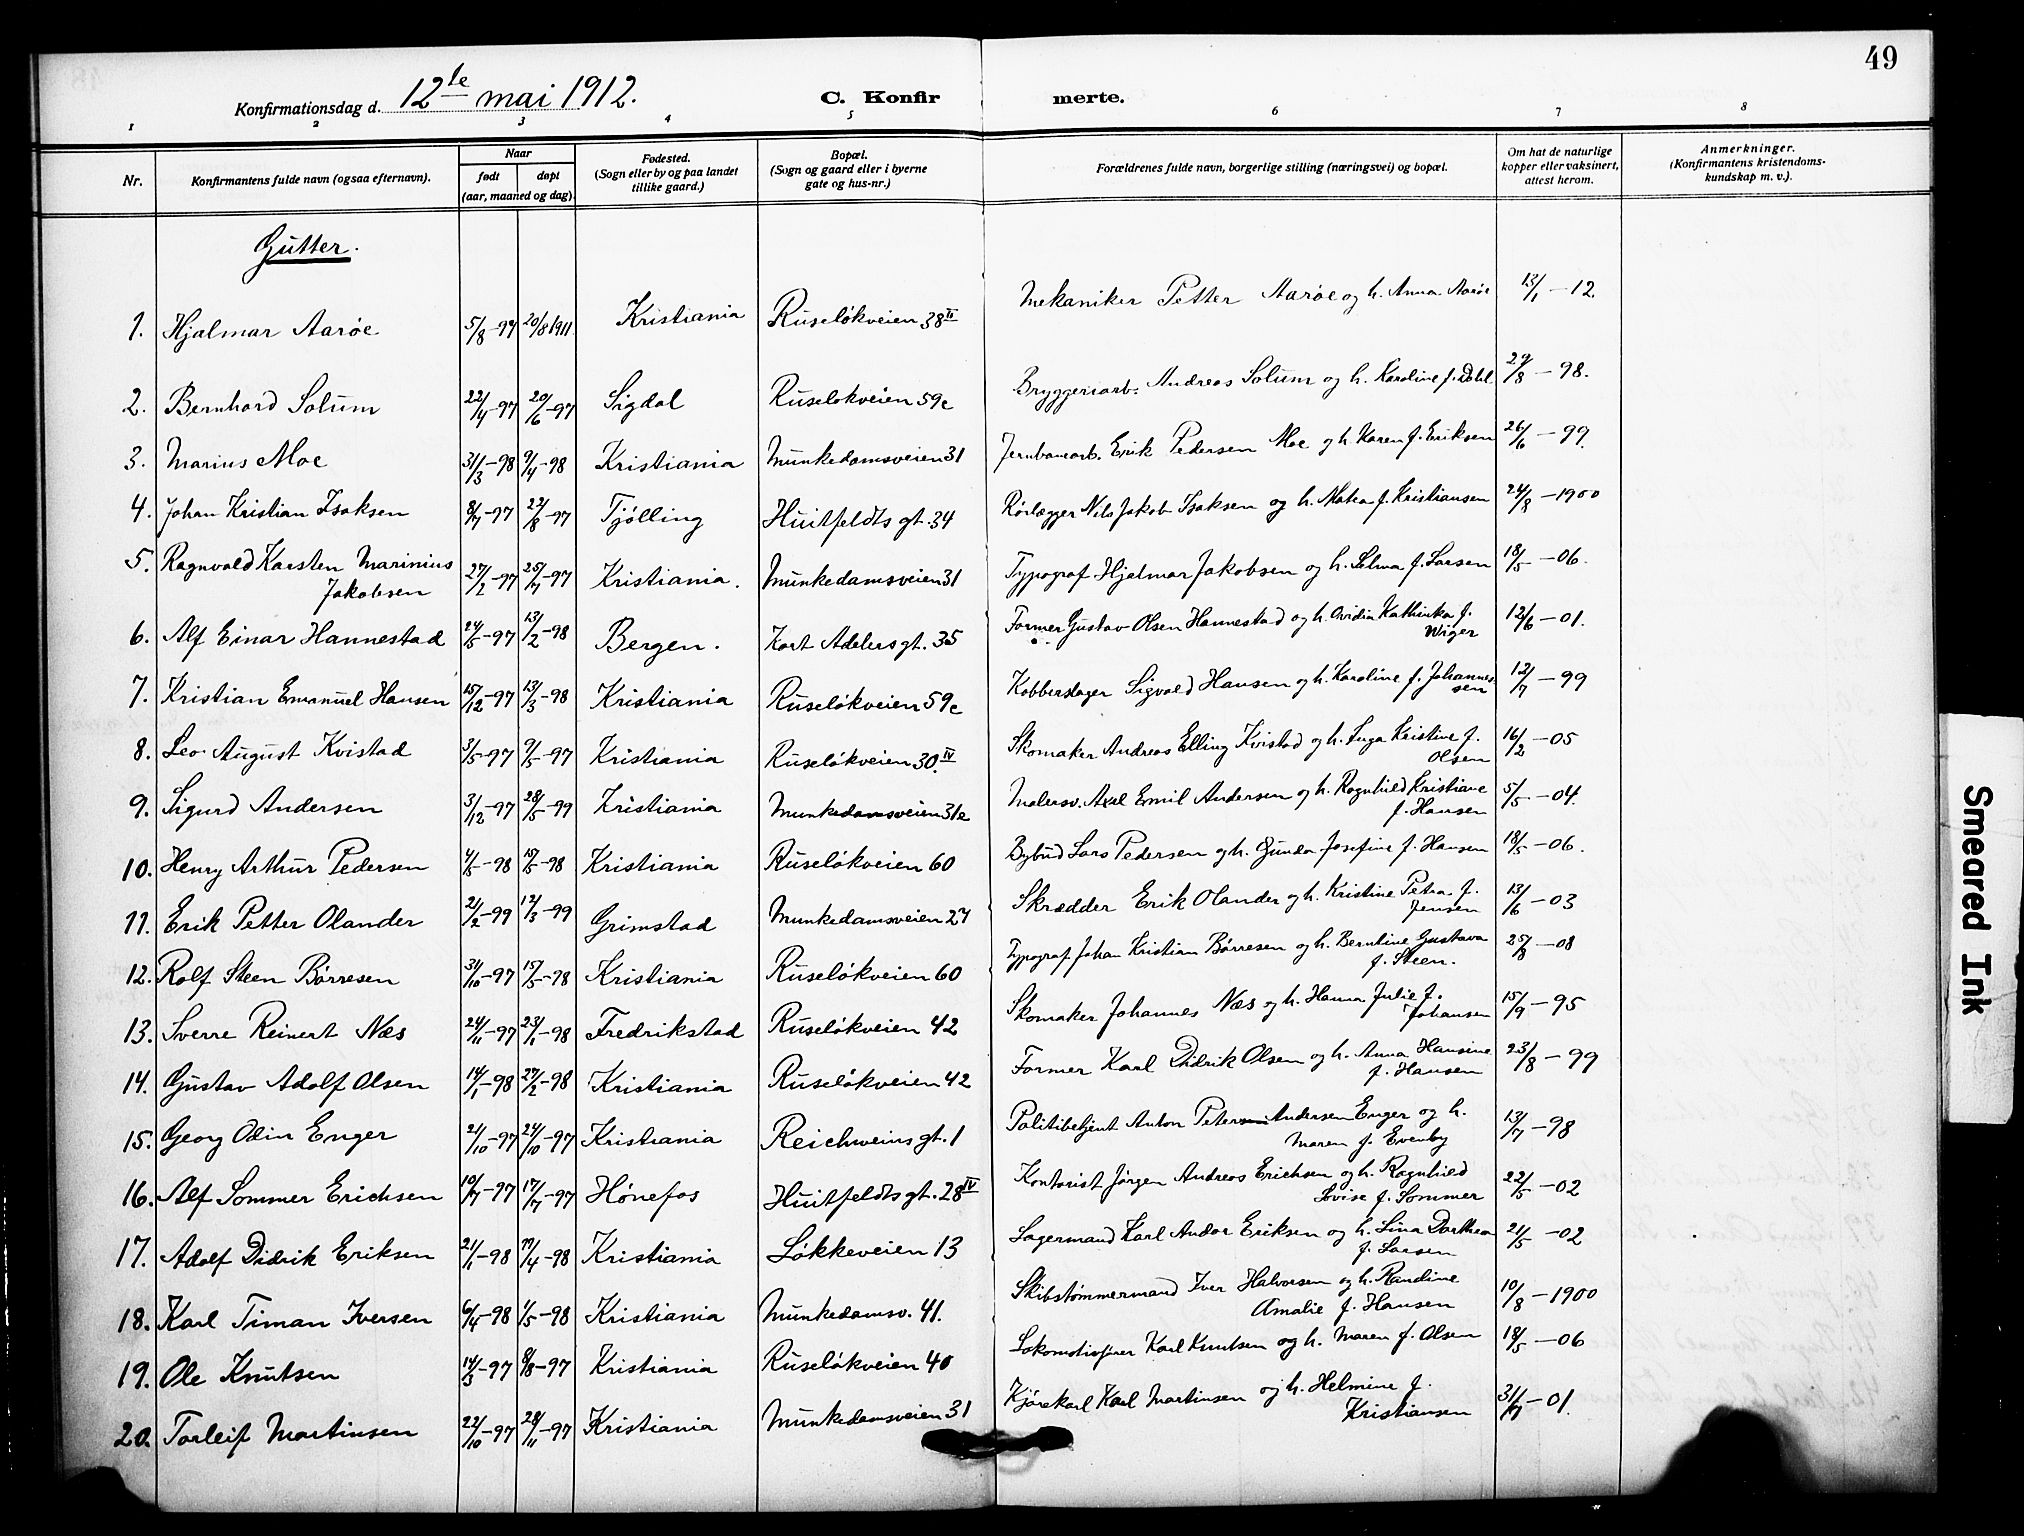 49
Konfirmationsdag d. 12te mai 1912. C. Konfir merte.
1 2 3 4 5 6 7 8
Nr. Konfirmantens fulde navn (ogsaa efternavn). Naar født døpt (aar, maaned og dag) Fødested. (Sogn eller by og paa landet tillike gaard.) Bopæl. (Sogn og gaard eller i byerne gate og hus-nr.) Forældrenes fulde navn, borgerlige stilling (næringsvei) og bopæl. Om hat de naturlige kopper eller vaksinert, attest herom. Anmerkninger. (Konfirmantens kristendoms-kundskap m. v.).
Gutter.
1. Hjalmar Aarøe 5/8-97 20/8 1911 Kristiania Ruseløkveien 38 II Mekaniker Petter Aarøe og h. Anna Aarøe 13/1-12.
2. Bernhard Solum 22/4-97 20/6-97 Sigdal Ruseløkveien 59c Bryggeriarb. Andreas Solum og h. Karoline f. Dahl 29/8-98.
3. Marius Moe 31/3-98 9/4-98 Kristiania Munkedamsveien 31 Jernbanearb. Erik Pedersen Moe og h. Karen f. Eriksen 26/6-99.
4. Johan Kristian Isaksen 8/7-97 22/8-97 Tjølling Huitfeldts gt. 34 Rørlægger Nils Jakob Isaksen og h. Matea f. Kristiansen 24/8-1900
5. Ragnvald Karsten Marinius Jakobsen 27/2-97 25/7-97 Kristiania. Munkedamsveien 31 Typograf Hjalmar Jakobsen og h. Selma f. Larsen 18/5-06.
6. Alf Einar Hannestad 24/5-97 13/2-98 Bergen. Kort Adelers gt. 35 Former Gustav Olsen Hannestad og h. Ovidia Kathinka f. Wiger 12/6-01.
7. Kristian Emanuel Hansen 15/12-97 13/3-98 Kristiania Ruseløkveien 59c Kobberslager Sigvald Hansen og h. Karoline f. Johannessen 12/7-99
8. Leo August Kvistad 3/5-97 9/5-97 Kristiania Ruseløkveien 30. IV Skomaker Andreas Elling Kvistad og h. Inga Kristine f. Olsen 16/2-05
9. Sigurd Andersen 3/12-97 28/5-99 Kristiania Munkedamsveien 31e Malersv. Axel Emil Andersen og h. Ragnhild Kristiane f. Hansen 5/5-04.
10. Henry Arthur Pedersen 4/5-98 15/5-98 Kristiania Ruseløkveien 60 Bybud Lars Pedersen og h. Gunda Josefine f. Hansen 18/5-06.
11. Erik Petter Olander 21/2-99 12/3-99 Grimstad Munkedamsveien 27 Skrædder Erik Olander og h. Kristine Petra f. Jensen 13/6-03
12. Rolf Steen Børresen 31/10-97 15/5-98 Kristiania Ruseløkveien 60 Typograf Johan Kristian Børresen og h. Berntine Gustava f. Steen. 25/8-08
13. Sverre Reinert Næs 24/11-97 23/1-98 Fredrikstad Ruseløkveien 42 Skomaker Johannes Næs og h. Hanna Julie f. Johansen 15/9-95
14. Gustav Adolf Olsen 14/1-98 27/2-98 Kristiania Ruseløkveien 42 Former Karl Didrik Olsen og h. Anna Hansine f. Hansen 23/8-99
15. Georg Odin Enger 21/10-97 24/10-97 Kristiania Reichweins gt. 1 Politibetjent Anton Petersen Andersen Enger og h. Maren f. Evenby 13/7-98
16. Alf Sommer Erichsen 10/7-97 17/7-97 Hønefos Huitfeldts gt. 28 IV Kontorist Jørgen Andreas Erichsen og h. Ragnhild Lovise f. Sommer 22/5-02
17. Adolf Didrik Eriksen 21/1-98 17/4-98 Kristiania Løkkeveien 13 Lagermand Karl Andor Eriksen og h. Lina Dorthea f. Larsen 21/5-02
18. Karl Timan Iversen 6/4-98 1/5-98 Kristiania Munkedamsv. 41. Skibstømmermand Iver Halvorsen og h. Randine Amalie f. Hansen 10/8-1900
19. Ole Knutsen 14/3-97 8/8-97 Kristiania Ruseløkveien 40 Lokomotivfører Karl Knutsen og h. Maren f. Olsen 18/5-06
20. Torleif Martinsen 22/10-97 28/11-97 Kristiania Munkedamsveien 31 Kjørekarl Karl Martinsen og h. Helmine f. Kristiansen 31/7-01.
Smeared Ink